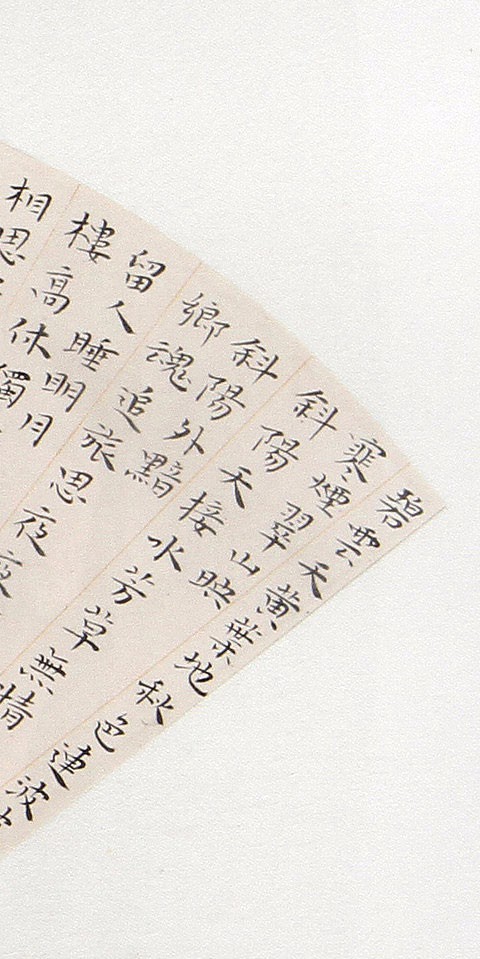 碧雲天黃葉地秋色連波
寒煙翠山映
斜陽天接水芳草無情
斜陽外黯
鄉魂追旅思夜夜
留人睡明月
樓高休獨
相思